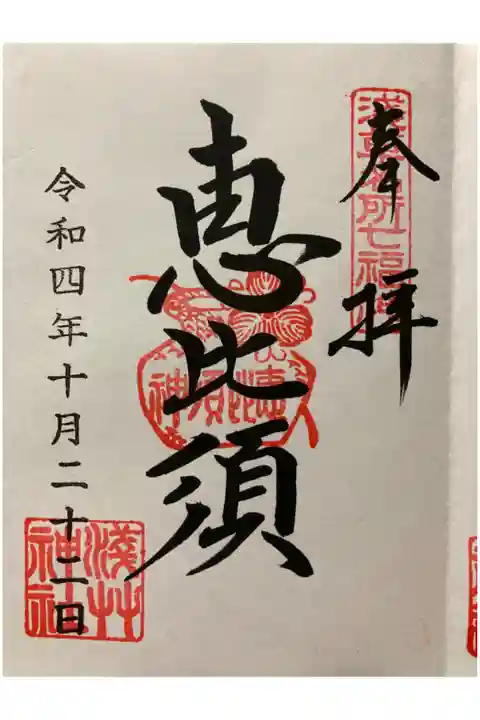 奉拝
浅草名所七福神
恵比須
恵比須神
令和四年十月二十二日
淺艸神社